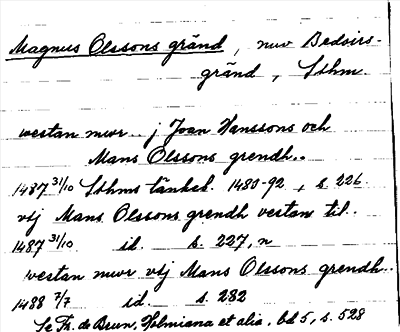 Magnus Olssons gränd, nuv Bedoirs-
gränd, Sthm.
vestan mwr.. j Joan Hanssons och
Mans Olssons grendh..
1487 31/10 Sthms tänkeb. 1480-92, s. 226.
vtj Mans Olssons grendh vestan til..
1487 31/10 id. s. 227, n
westan mwr vtj Mans Olssons grendh..
1488 7/7 id. s. 282
Se Fr. de Brun, Holmiana et alia, bd 5, s. 528